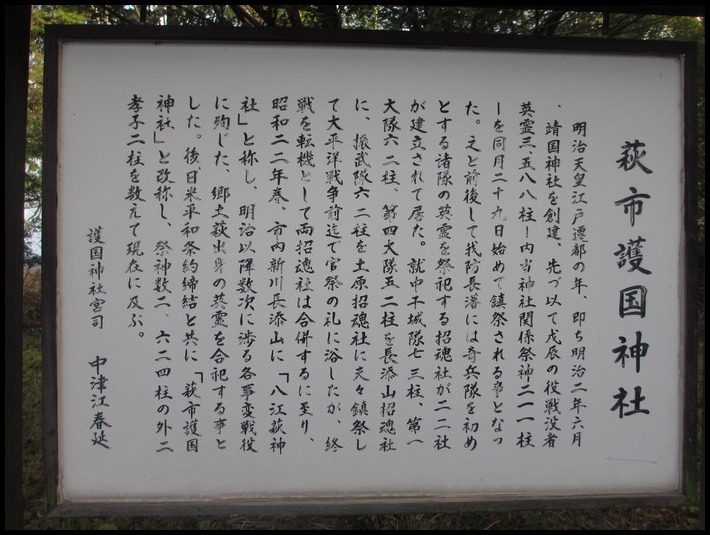 萩市護国神社
明治天皇江戸遷都の年、即ち明治二年六月
、靖国神社を創建、先づ以て戊辰の役戦没者
英霊三、五八八柱ー内当神社関係祭神二一一柱
ーを同月二十九日始めて鎮祭される事となっ
た。之と前後して我防長藩には奇兵隊を初め
とする諸隊の英霊を祭祀する招魂社が二二社
が建立されて居た。就中干城隊七三柱、第一
大隊六二柱、第四大隊五二柱を長添山招魂社
に、振武隊六二柱を土原招魂社に夫々鎮祭し
て大平洋戦争前迄で官祭の礼に浴したが、終
戦を転機として両招魂社は合併するに至り、
昭和二二年春、市内新川長添山に「八江萩神
社」と称し、明治以降数次に渉る各事変戦役
に殉じた、郷土萩出身の英霊を合祀する事と
した。後日米平和条約締結と共に「萩市護国
神社」と改称し、祭神数二、六二四柱の外二
孝子二柱を数えて現在に及ぶ。
護国神社宮司　中津江春延